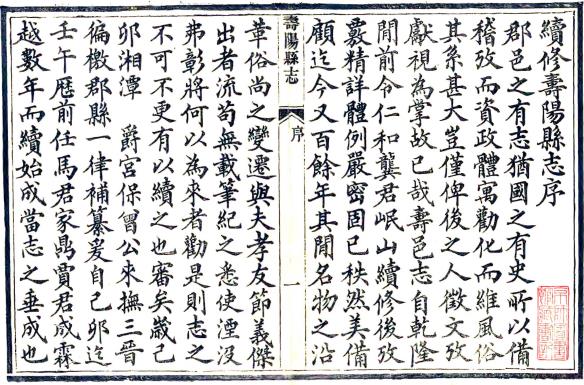 續修壽陽縣志序
郡邑之有志猶國之有史所以備
稽攷而資政體寓勸化而維風俗
其系甚大豈僅俾後之人徵文攷
獻視為掌故已哉壽邑志自乾隆
間前令仁和龔君岷山續修後攷
覈精詳體例嚴密固已秩然美備
顧迄今又百餘年其間名物之沿
壽陽縣志 序 一
革俗尚之變遷與夫孝友節義傑
出者流苟無載筆紀之悉使湮沒
弗彰將何以為來者勸是則志之
不可不更有以續之也審矣歲己
卯湘潭 爵宮保曾公來撫三晉
徧檄郡縣一律補纂爰自己卯迄
壬午歷前任馬君家鼎賈君成霖
越數年而續始成當志之垂成也